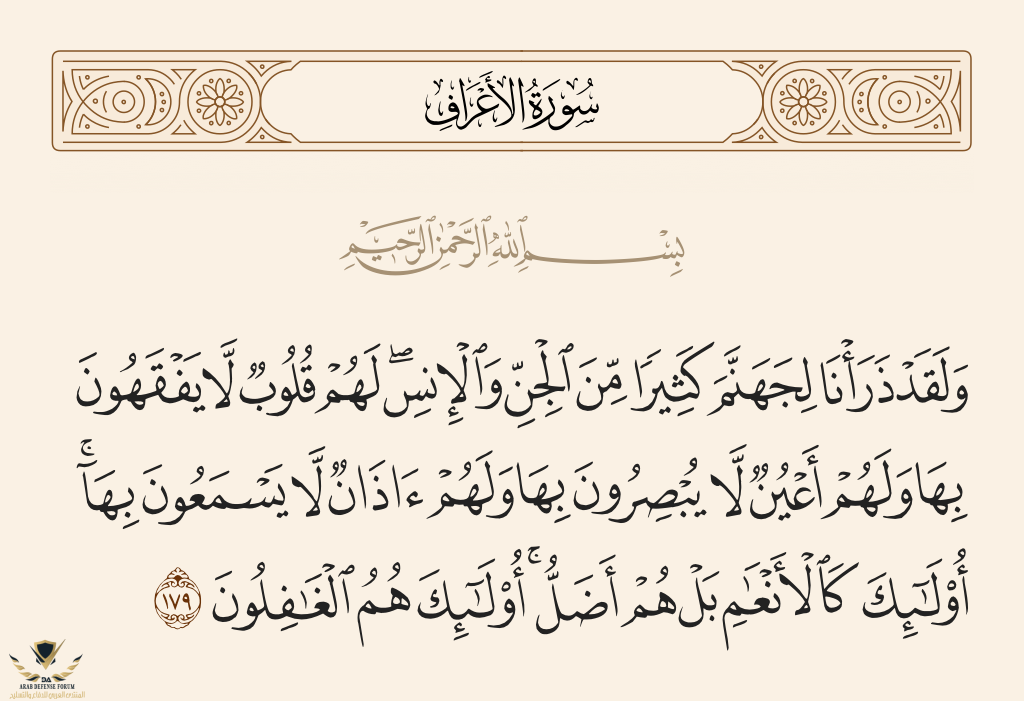 سُورَةُ الأَعْرَافِ
بِسْمِ ٱللَّهِ ٱلرَّحْمَٰنِ ٱلرَّحِيمِ
وَلَقَدْ ذَرَأْنَا لِجَهَنَّمَ كَثِيرًا مِّنَ ٱلْجِنِّ وَٱلْإِنسِ ۖ لَهُمْ قُلُوبٌ لَّا يَفْقَهُونَ
بِهَا وَلَهُمْ أَعْيُنٌ لَّا يُبْصِرُونَ بِهَا وَلَهُمْ ءَاذَانٌ لَّا يَسْمَعُونَ بِهَآ ۚ
أُو۟لَٰٓئِكَ كَٱلْأَنْعَٰمِ بَلْ هُمْ أَضَلُّ ۚ أُو۟لَٰٓئِكَ هُمُ ٱلْغَٰفِلُونَ ١٧٩
DA
ARAB DEFENSE FORUM
المنتدى العربي للدفاع والتسليح